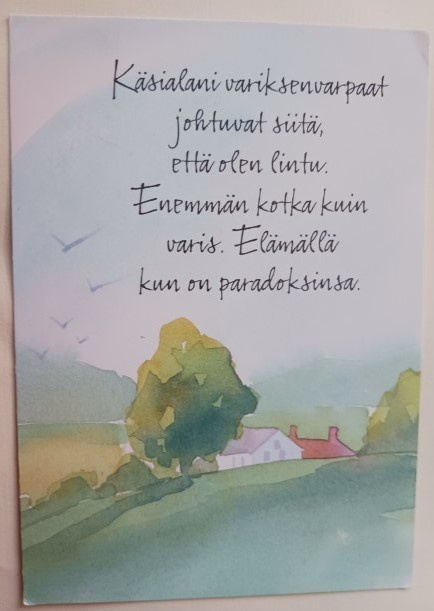 Käsialani variksenvarpaat
johtuvat siitä,
että olen lintu.
Enemmän kotka kuin
varis. Elämällä
kun on paradoksinsa.